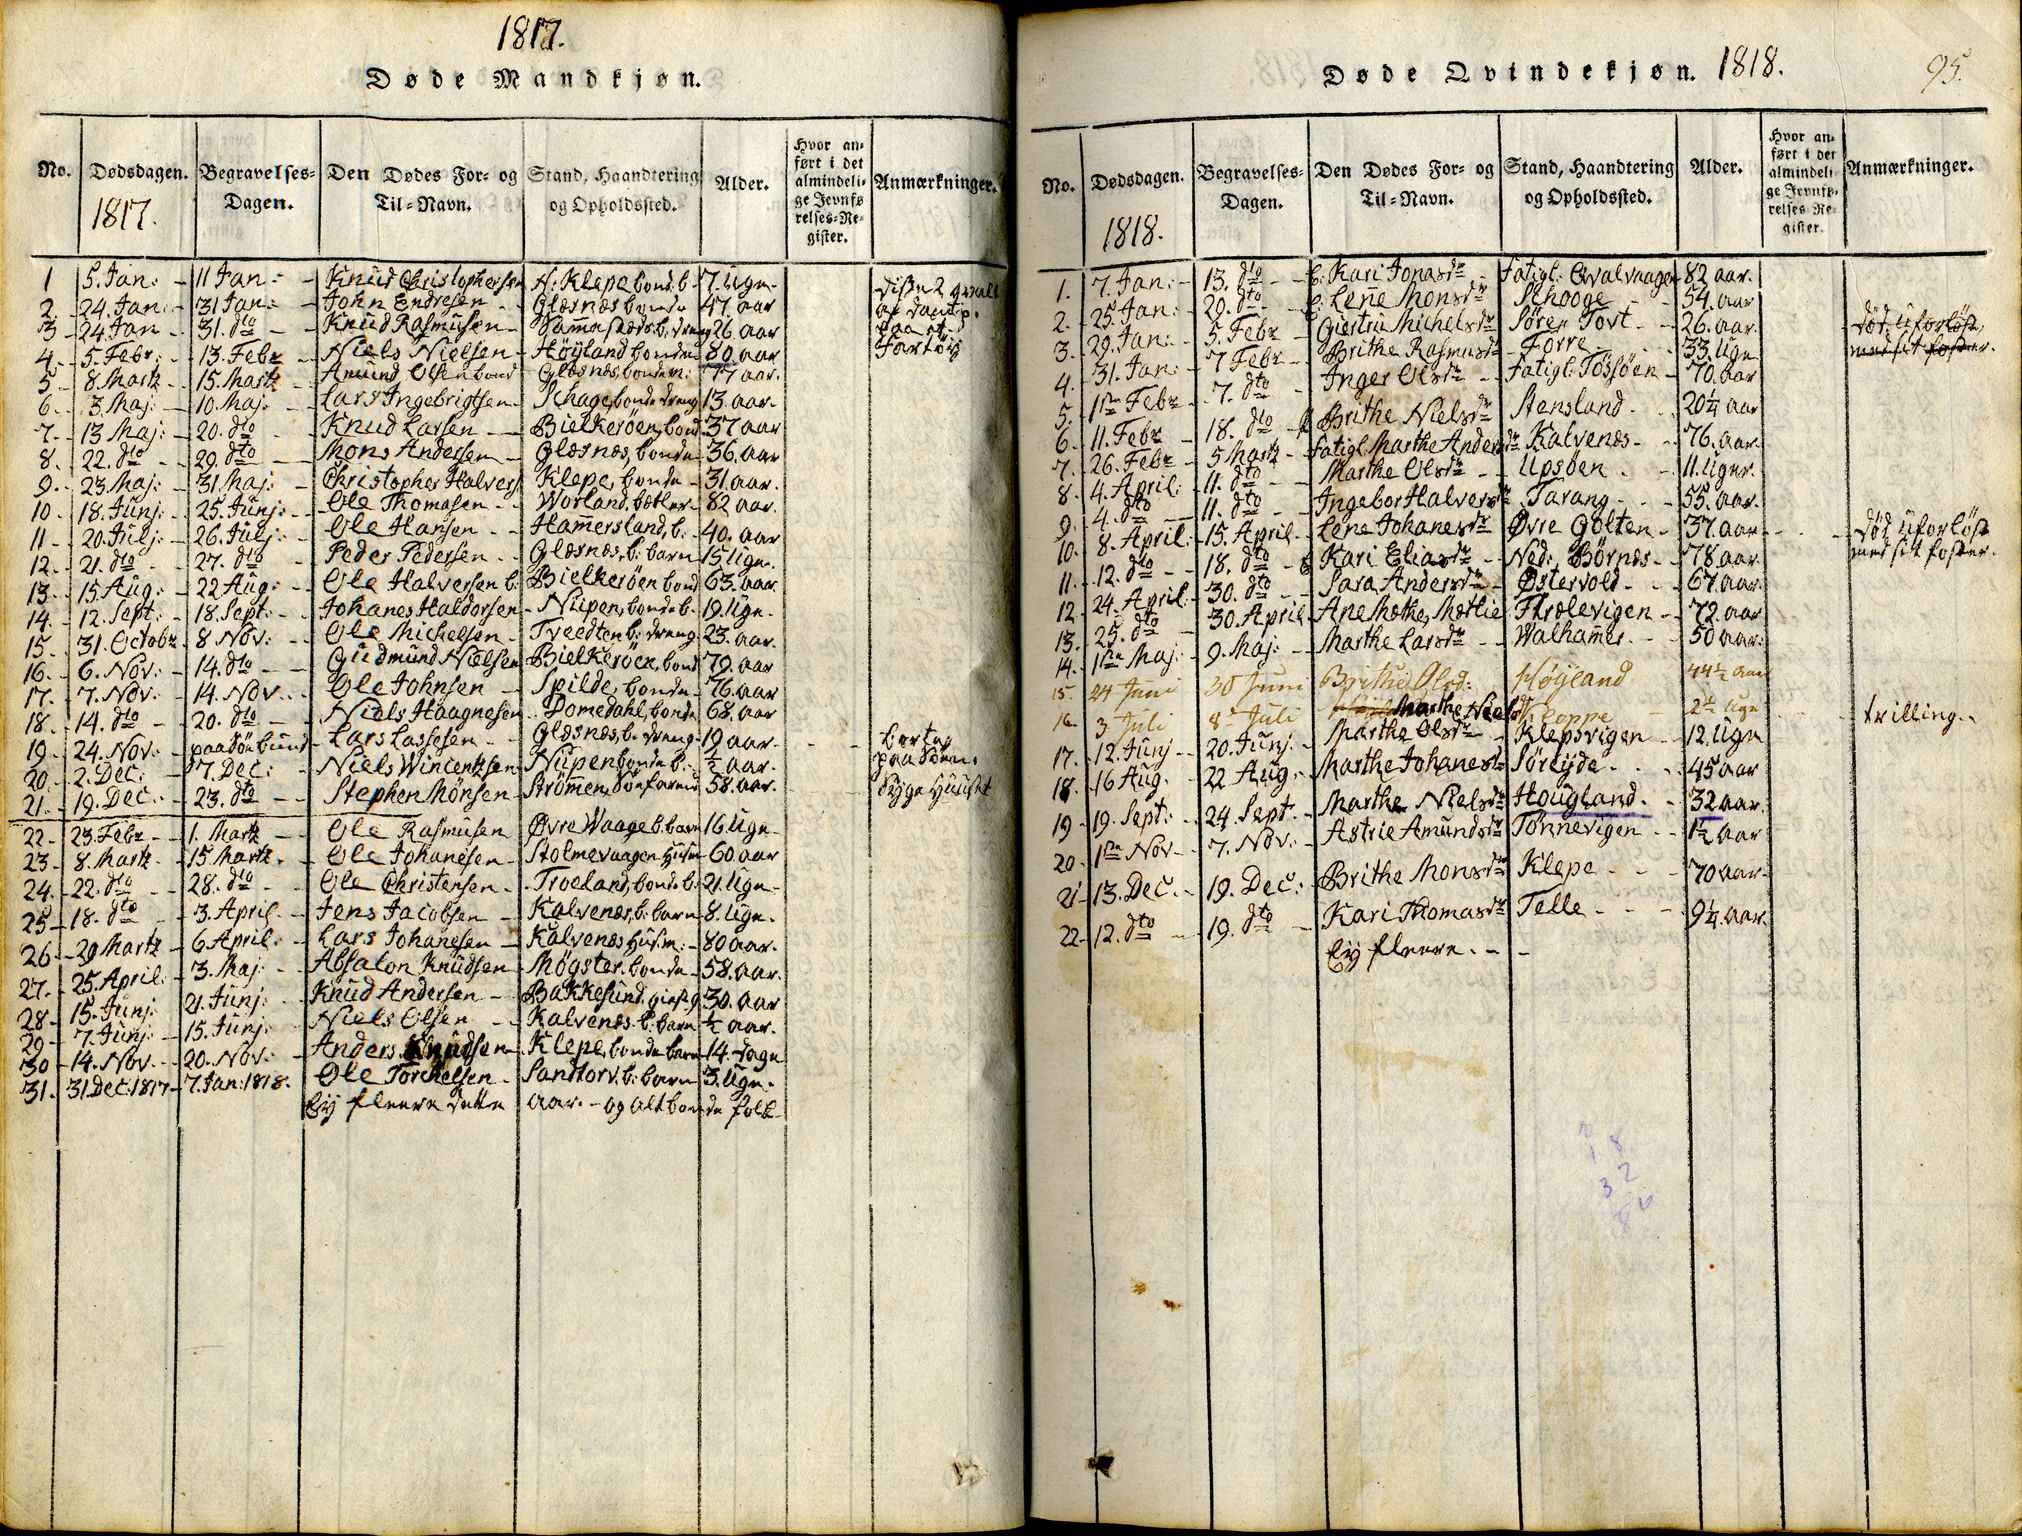 1817.
Døde Mandkjøn.
No.
Dødsdagen.
1817.
Begravelses-
Dagen.
Den Dødes For- og
Til-Navn.
Stand, Haandtering
og Opholdssted.
Alder.
Hvor an-
ført i det
almindeli-
ge Jevnfø
relses-Re-
gister.
Anmærkninger.
1 5. Jan: 11 Jan: Knud Christophersen N: Klepe bond. b. 7. Ugr.
2. 24. Jan: 31 Jan: John Endresen Glæsnæs bonde 47. aar
3 24 Jan 31. dto Knud Rasmusen dreng 26 aar
4. 5. Febr: 13. Febr Niels Nielsen Höyland bonde 80 aar
5 8. Martz 15. Martz Amund Olsen Glæsnæs, 77 aar.
6. 3. Maj: 10. Maj. Lars Ingebrigtsen Schage, bonde dreng 13. aar.
7. 13 Maj: 20. dto Knud Larsen Bielkerøen, bond 37 aar
8. 22. dto 29. dto Mons Andersen Glæsnæs, bonde 36. aar
9. 23 Maj: 31 Maj: Christopher Halvers Klepe, bonde 31. aar.
10 18. Junj: 25. Junj: Ole Thomasen Worland, 82 aar.
11 20. Julj: 26. Julj: Ole Hansen Hammersland, b: 40. aar
12. 21. dto 27. dto Peder Pedersen Glæsnæs, b: barn 15. Ugr.
13. 15 Aug: 22 Aug: Ole Halversen b: Bielkerøen bond 63. aar.
14. 12. Sept: 18. Sept: Johanes Haldorsen Nüpen, bonde b. 19. Ugr.
15. 31. Octobr 8 Nov: Ole Michelsen Tveedten b: dreng 23. aar.
16. 6. Nov: 14. dto Gudmund Nielsen Bielkerøen, bond 79. aar
17. 7. Nov. 14. Nov. Ole Johnsen Spilde, bonde 76. aar
18. 14. dto 20. dto Niels Haagnesen Domedahl, bonde 68. aar
19. 24. Nov: paa Søn Lars Lassesen Glæsnæs, b. dreng 19 aar.
20. 2. Dec: 7. Dec: Niels Wincentzsen Nüpen bonde b. ½ aar.
21. 19. Dec: 23. dto Stephen Monsen Strömmen, 58. aar.
22 23. Febr 1. Martz Ole Rasmusen Øvre Waage b. barn 16 Ugr
23 8. Martz 15 Martz. Ole Johanesen Stolmevaagen Husm 60 aar
24. 22. dto 28. dto Ole Christensen Troeland, bonde b: 21. Ugr
25 18. dto 3. April. Jens Jacobsen Kalvenæs, b. barn 8. Ugr.
26 29 Martz 6. April. Lars Johanesen Kalvenæs Husm: 80 aar.
27. 25. April: 3. Maj: Absalon Knudsen Møgster. bonde 58. aar.
28 15. Junj: 21. Junj: Knud Andersen Bakkesund, 30. aar
29 7. Junj: 15. Junj: Niels Olsen Kalvenæs. b. barn ½ aar.
30 14. Nov. 20. Nov: Anders Knudsen Klepe, bonde barn 14. dage
31. 31. Dec: 1817 7. Jan: 1818. Ole Torchelsen Sandtorv. b: barn 3. Ugr.
Ey fleere dette aar. - og alt bonde folk
disse 2
paa et
Fartøy
paa Søen.
Syge Huuset
Døde Qvindekjøn. 1818.
95.
No.
Dødsdagen.
1818.
Begravelses-
Dagen.
Den Dødes For- og
Til-Navn.
Stand, Haandtering
og Opholdssted.
Alder.
Hvor an-
ført i det
almindeli
ge Jevnfø-
relses-Re-
gister.
Anmærkninger.
1. 7. Jan: 13. dto Kari Jonasdr fatigl: Qvalvaagen 82 aar.
2. 25. Jan: 29. dto Lene Monsdr Schooge 54. aar
3. 29. Jan: 5. Febr Giertru Michelsdr Sören Tovt 26. aar. död uforløst,
4. 31. Jan: 7 Febr Brithe Rasmusdr Torre 33. Ugr med sit foster.
5. 1ste Febr 7. dto Inger Olsdr fatigl: Tössöen 70. aar
6. 11. Febr 18. dto Brithe Nielsdr Stensland. 20¼ aar
7. 26. Febr 5 Martz fatigl. Marthe Andersdr Kalvenæs 76. aar.
8. 4. April: 11. dto Marthe Olsdr Upsöen. 11. Uger.
9. 4. dto 11. dto Ingebor Halversdr Tarang 55. aar.
10. 8. April: 15. April. Lene Johanesdr Øvre Golten 37. aar död uforløst
11. 12. dto 18. dto Kari Eliasdr Ned: Börnæs 78 aar. med sit foster.
12. 24. April: 30. dto Sara Andersdr Østervold 67. aar.
13. 25. dto 30. April Ane Mætlie Thrælevigen 72. aar
14. 1ste Maj: 9. Maj: Marthe Larsdr Walhammer 50 aar.
15. 24 Juni 30 Juni Brithe Olsd: Höyland 44½ aar
16. 3 Juli 8 Juli Marthe Nielsdr Kleppe 2½ Ugr trilling.
17. 12. Junj 20. Junj. Marthe Olsdr Klepsvigen 12. Ugr
18. 16 Aug. 22 Aug. Marthe Johanesdr Söreide 45 aar
19 19. Sept: 24. Sept. Marthe Nielsdr Hougland. 32 aar.
20. 1ste Nov 7. Nov: Astrie Amundsdr Tönnevigen 1½ aar
21 13. Dec. 19. Dec: Brithe Monsdr Klepe 70 aar
22 12. dto 19. dto Kari Thomasdr Telle 9¼ aar.
Ey fleere.